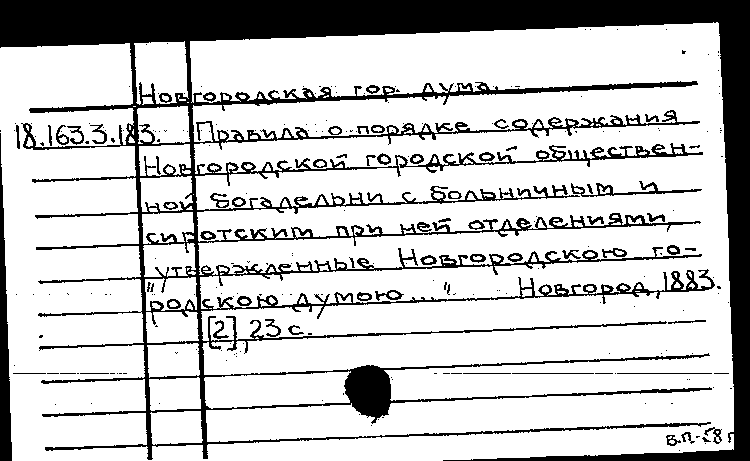 Новгородская гор. дума.
18.163.3.183. Правила о порядке содержания
Новгородской городской обществен-
ной богадельни с больничным и
сиротским при ней отделениями,
утвержденные Новгородскою го-
"родскою думою..." Новгород, 1883.
[2], 23 с.
В.П-58г